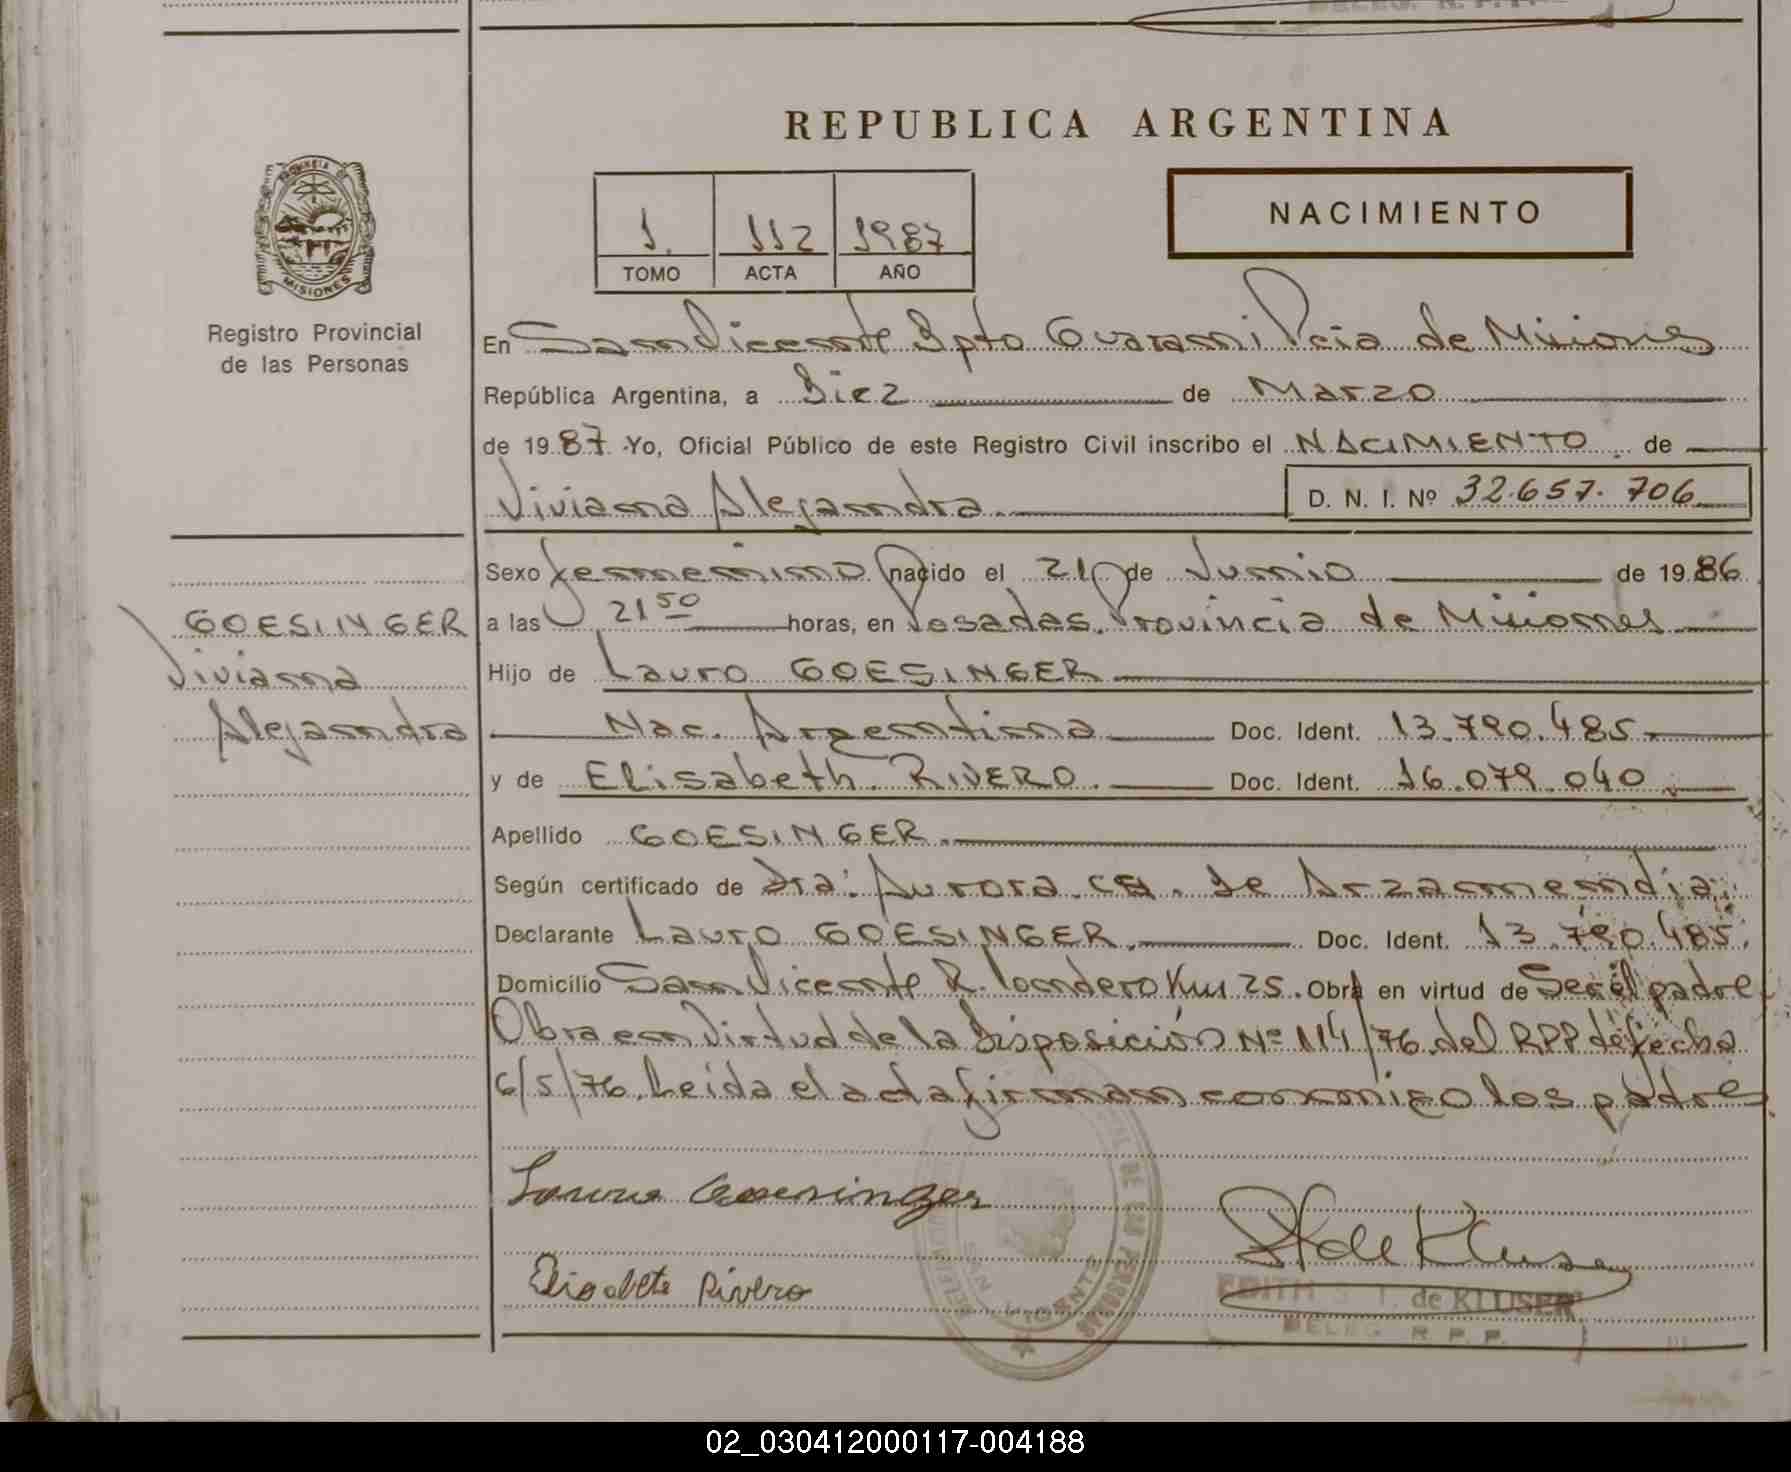 REPUBLICA ARGENTINA
NACIMIENTO
1. 112 1987
TOMO ACTA AÑO
PROVINCIA DE
MISIONES
Registro Provincial
de las Personas
En San Vicente Dpto Guarani Pcia de Misiones
República Argentina, a Diez de Marzo
de 1987 -Yo, Oficial Público de este Registro Civil inscribo el NACIMIENTO de
Viviana Alejandra. D. N. I. Nº 32.657.706
Sexo femenino nacido el 21 de Junio de 1986
a las 21 50 horas, en Posadas. Provincia de Misiones
Hijo de Lauro GOESINGER
Nac. Argentina Doc. Ident. 13.790.485
y de Elisabeth RIVERO. Doc. Ident. 16.079.040
Apellido GOESINGER.
Según certificado de Dra: Aurora de Arzamendia;
Declarante Lauro GOESINGER. Doc. Ident. 13.790.485.
Domicilio San Vicente R. Londero Km 25. Obra en virtud de Ser el padre
Obra en Virtud de la Disposición Nº 114/76 del RPP de fecha
6/5/76. Leida el acta firman conmigo los padres
GOESINGER
Viviana
Alejandra
Lauro Goesinger
Elisabete Rivero
de Kluser
EDITH S. T. de KLUSER
DELEG. R. P. P.
SAN VICENTE
DE LAS PERSONAS
02_030412000117-004188